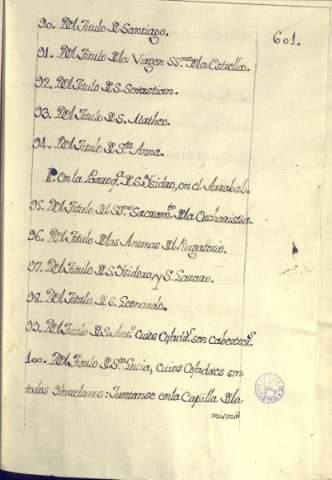 601.
90. Del Titulo de Santiago.
91. Del Titulo de la Virgen SSma de la Estrella.
92. Del Titulo de S. Sevastian.
93. Del Titulo de S. Matheo.
94. Del Titulo de Sta Anna.
Pº. en la Parroqa. de S. Ysidro, en el Arrabal.
95. Del Titulo del SSmo Sacramto. de la Euchoristia.
96. Del Titulo de las Animas del Purgatorio.
97. Del Titulo de S. Ysidoro, y S. Lazaro.
98. Del Titulo de S. Leonardo.
99. Del Titulo de S. Anto. cuios Cofads. son cabestros.
100. Del Titulo de Sta Lucia, cuios Cofadres son
todos Hortelanos: Juntanse en la Capilla de la
misma